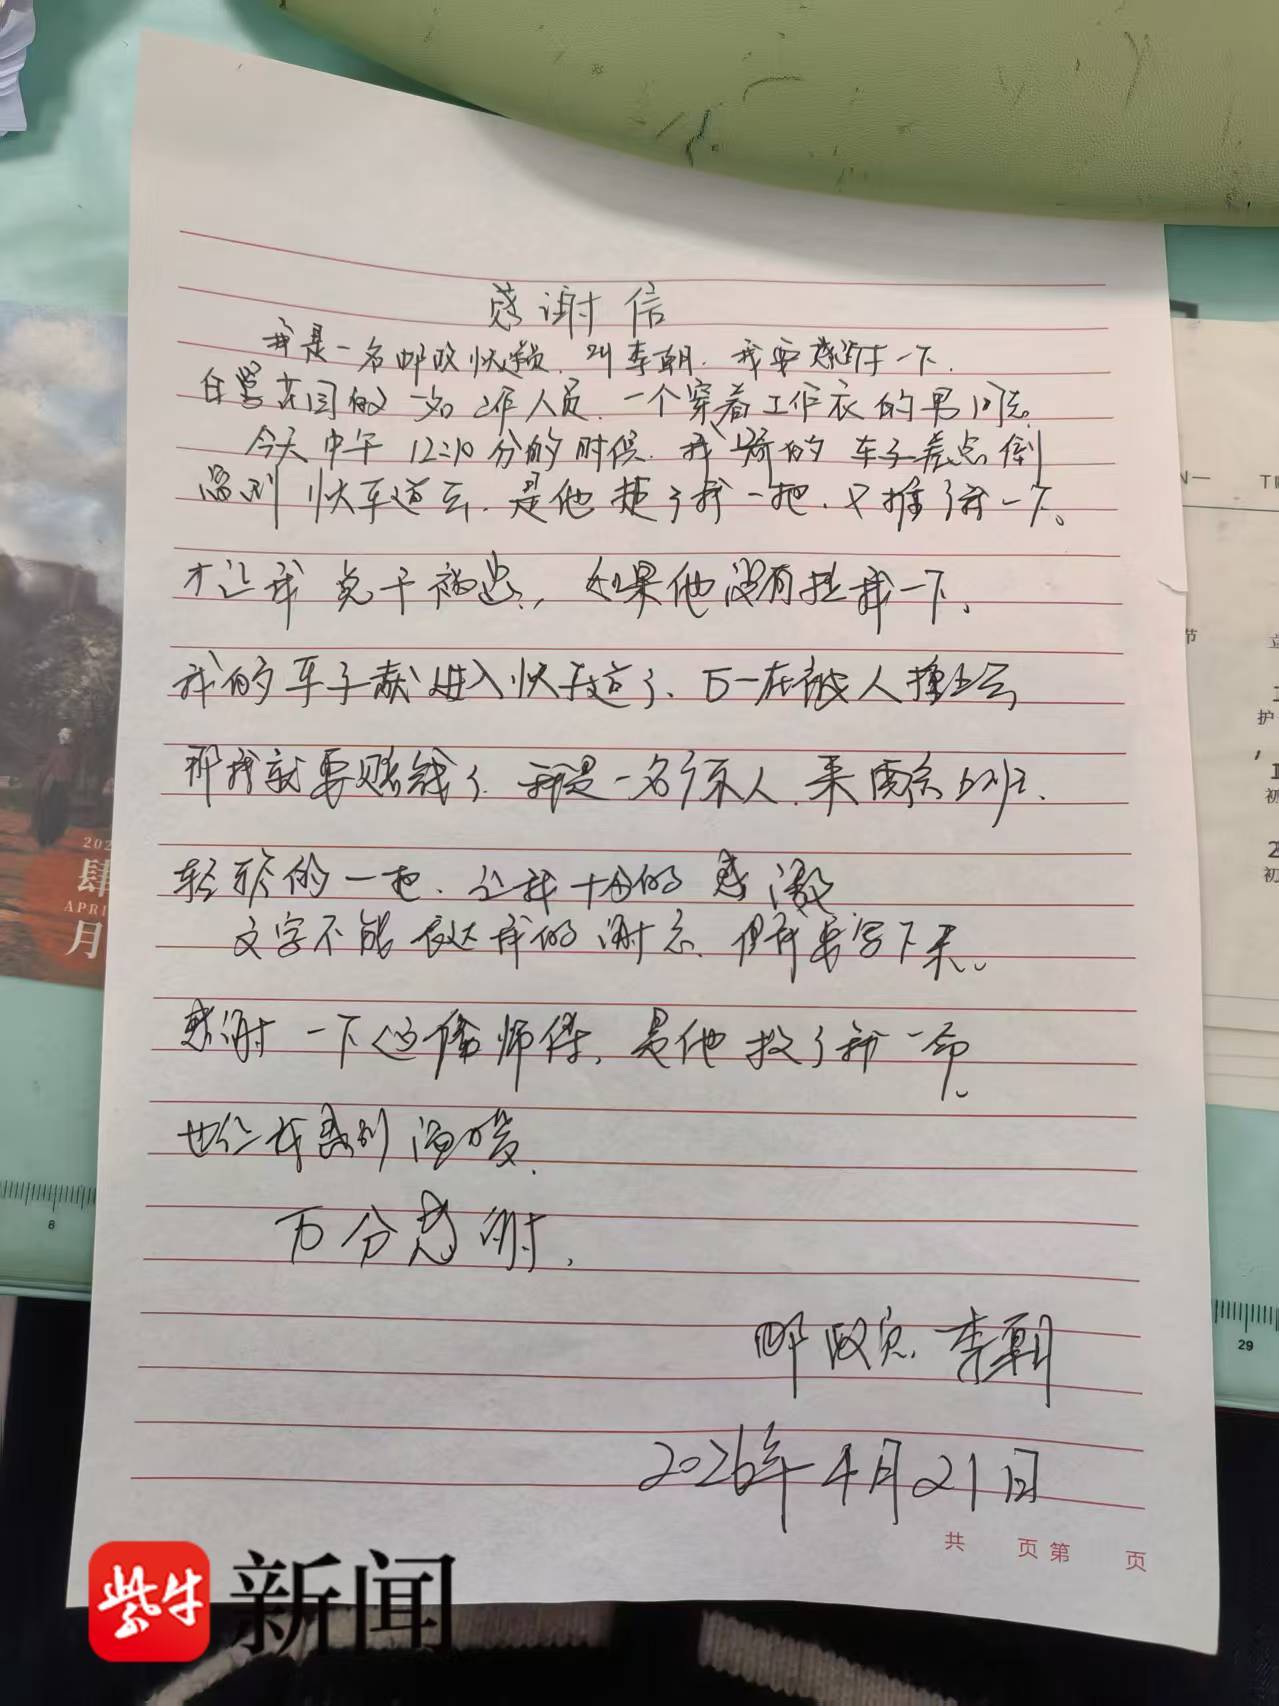 感谢信
我是一名邮政快递员,叫李朝.我要感谢一下.
花园的一名工作人员.一个穿着工作衣的男同志.
今天中午12:10分的时候.我骑的车子差点倒
到快车道去.是他 了我一把.又推了我一下。
才让我免于祸患.,如果他没有 我一下.
我的车子就进入快车道了、万一在被人撞上去
那我就要赔钱了.我是一名 人.来南京上班.
轻轻的一 .让我十分的感激
文字不能表达我的谢意.但我要写下来。
感谢一下这位师傅.是他救了我一命。
也让我感到温暖.
万分感谢.
邮政 .李朝
2026年4月21日
共 页 第 页
202
肆
APRI
月
8
29
N一
TI
节
护
初
2
初
紫牛
新闻